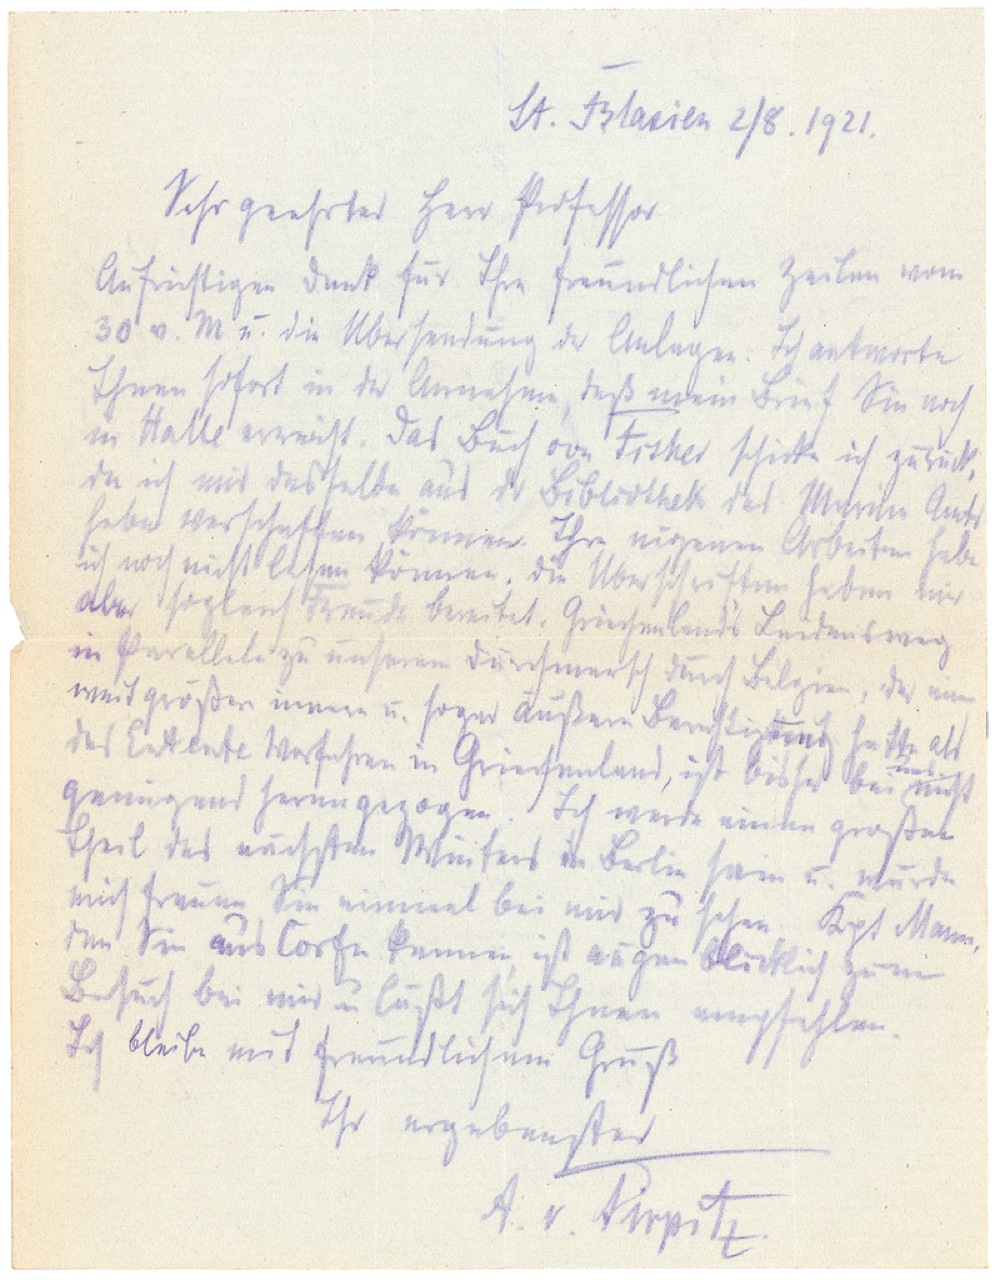 St. Blasien 2/8. 1921.
Sehr geehrter Herr Professor
Aufrichtigen Dank für Ihre freundlichen Zeilen vom
30 v. M u. die Übersendung der Anlagen. Ich antworte
Ihnen sofort in der Annahme, daß mein Brief Sie noch
in Halle erreicht. Das Buch von Fisher schicke ich zurück,
da ich mir dasselbe aus der Bibliothek des Marine Amts
habe verschaffen können. Ihre eigenen Arbeiten habe
ich noch nicht lesen können. Die Überschriften haben mir
aber sogleich Freude bereitet. Griechenlands Leidensweg
in Parallele zu unserem Durchmarsch durch Belgien, der eine
weit größere innere u. sogar äußere Berechtigung hatte als
das Entente Verfahren in Griechenland, ist bisher bei uns nicht
genügend herangezogen. Ich werde einen großen
Theil des nächsten Winters in Berlin sein u. würde
mich freuen Sie einmal bei mir zu sehen. Kpt Mann,
den Sie aus Corfu kennen, ist augenblicklich zum
Besuch bei mir u läßt sich Ihnen empfehlen.
Ich bleibe mit freundlichem Gruß
Ihr ergebenster
A. v. Tirpitz.